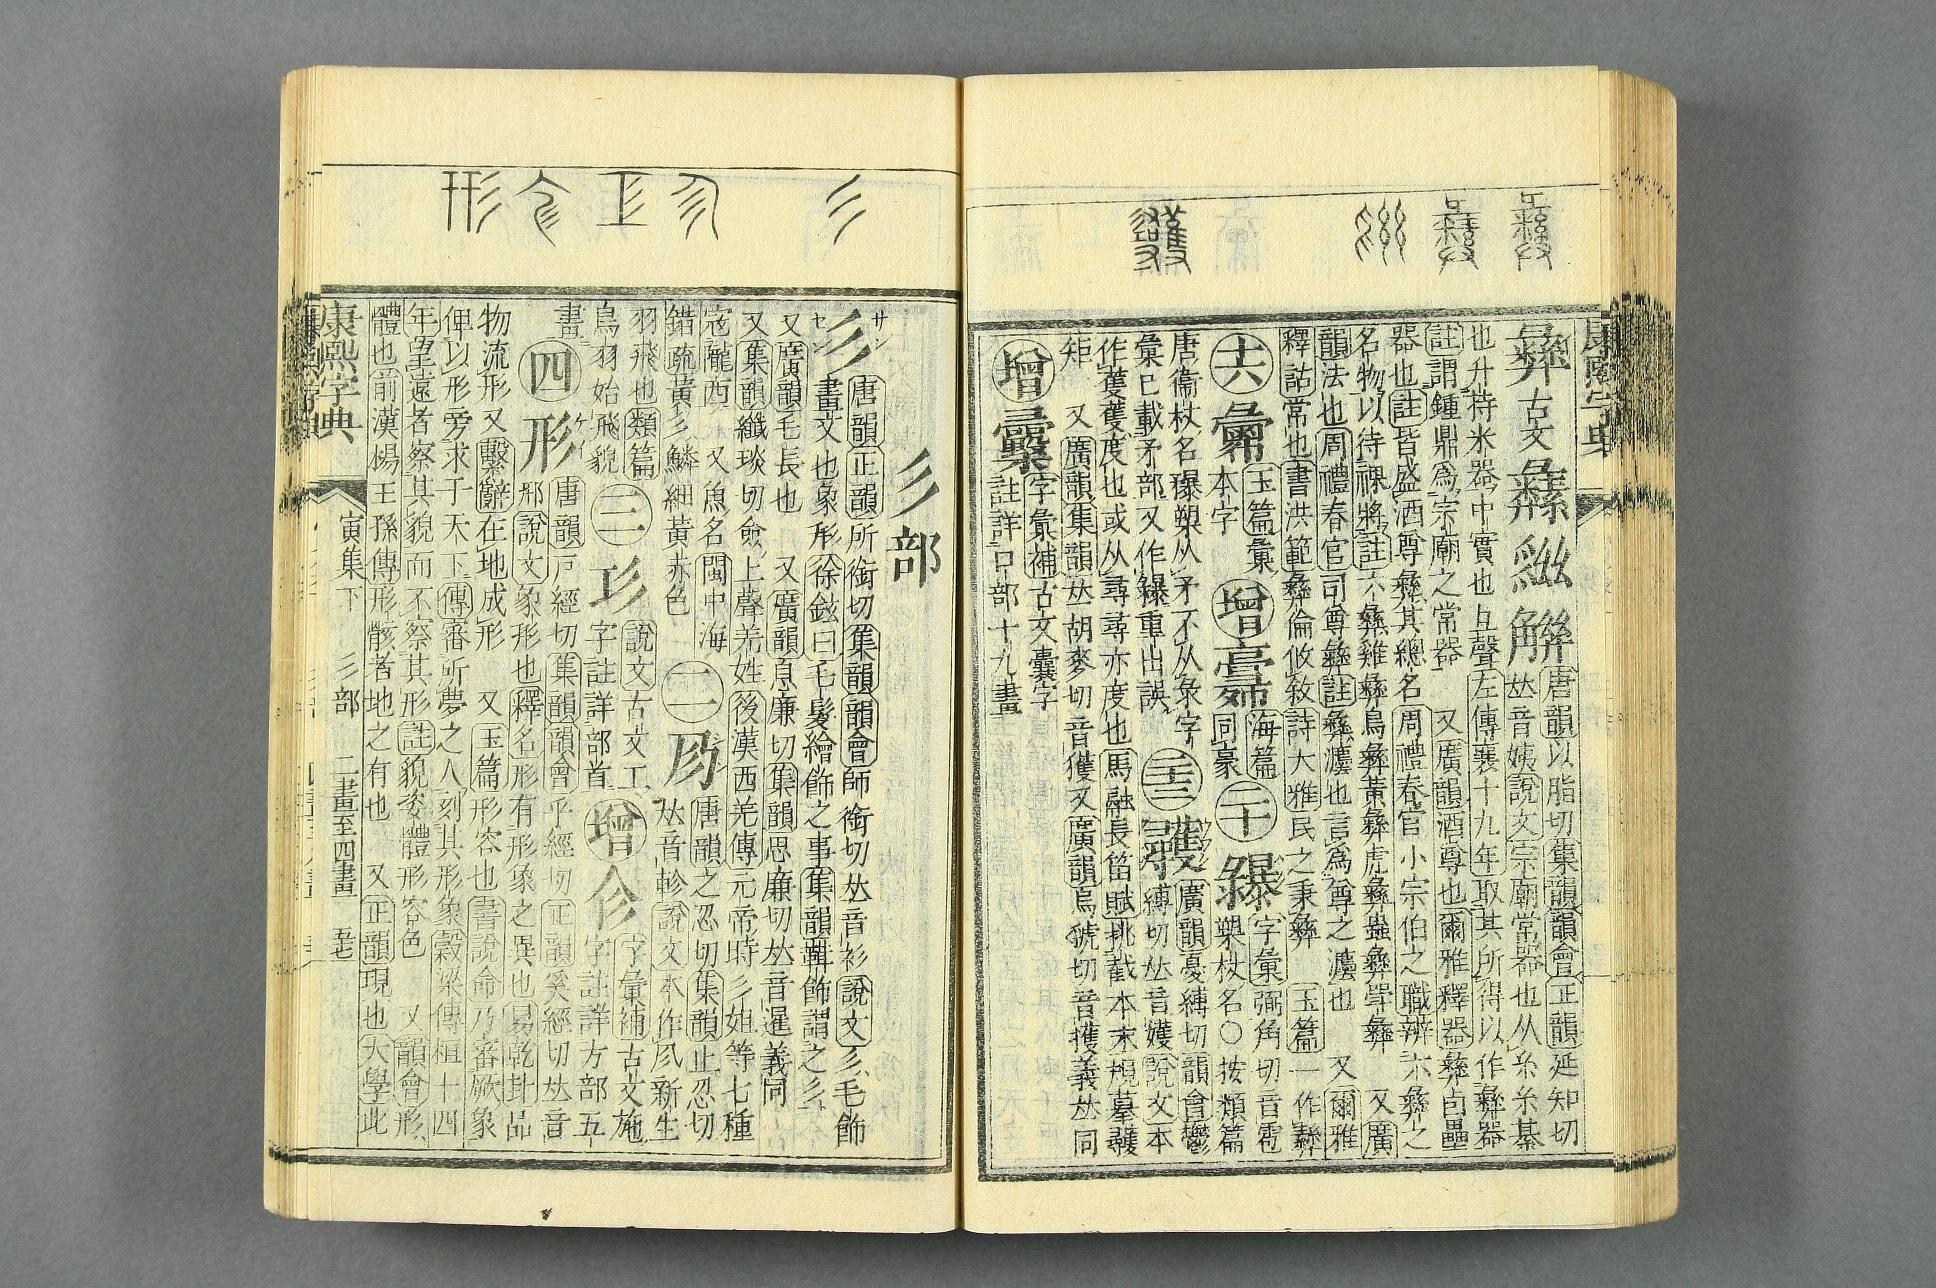 彝古文彞𢑴𢑱唐韻以脂切集韻韻會正韻延知切
𠀤音姨說文宗廟常器也从糸糸綦
也廾持米器中實也彑聲左傳襄十九年取其所得以作彝器
註謂鍾鼎爲宗廟之常器 又廣韻酒尊也爾雅釋器彝卣罍
器也註皆盛酒尊彝其總名 周禮春官小宗伯之職辨六彝之
名物以待祼將註六彝雞彝鳥彝黃彝虎彝蟲彝斝彝 又廣
韻法也周禮春官司尊彝註彝灋也言爲尊之灋也 又爾雅
釋詁常也書洪範彝倫攸敘詩大雅民之秉彝 玉篇一作彞
十六 本字 玉篇彙 增 海篇同豪 二十 字彙弼角切音雹
槊杖名○按類篇
唐衞杖名 槊从矛不从彖字 二十三 彠廣韻憂縛切韻會鬱
縛切𠀤音嬳說文本
彙已載矛部又作 重出誤
作蒦蒦度也或从尋尋亦度也馬融長笛賦挑截本末規摹彠
矩 又廣韻集韻𠀤胡麥切音獲又廣韻烏虢切音擭義𠀤同
增 字彙補古文囊字
註詳口部十九畫
彡部
彡唐韻正韻所銜切集韻韻會師銜切𠀤音衫說文彡毛飾
畫文也象形徐鉉曰毛髮繪飾之事集韻 飾謂之彡
又廣韻毛長也 又廣韻息廉切集韻思廉切𠀤音暹義同
又集韻纖琰切僉上聲羌姓後漢西羌傳元帝時彡姐等七種
寇隴西 又魚名閩中海
錯疏黃彡鱗細黃赤色 二 㐱唐韻之忍切集韻止忍切
𠀤音軫說文本作㐱新生
羽飛也類篇
鳥羽始飛貌 三 㣉說文古文工
字註詳部首 增 㣋字彙補古文施
字註詳方部五
畫 四 形唐韻戸經切集韻韻會乎經切正韻奚經切𠀤音
邢說文象形也釋名形有形象之異也易乾卦品
物流形又繫辭在地成形 又玉篇形容也書說命乃審厥象
俾以形旁求于天下傳審所夢之人刻其形象穀梁傳桓十四
年望遠者察其貌而不察其形註貌姿體形容色 又韻會形
體也前漢楊王孫傳形骸者地之有也 又正韻現也大學此
康熙字典 寅集下 彡部 二畫至四畫 五七
康熙字典